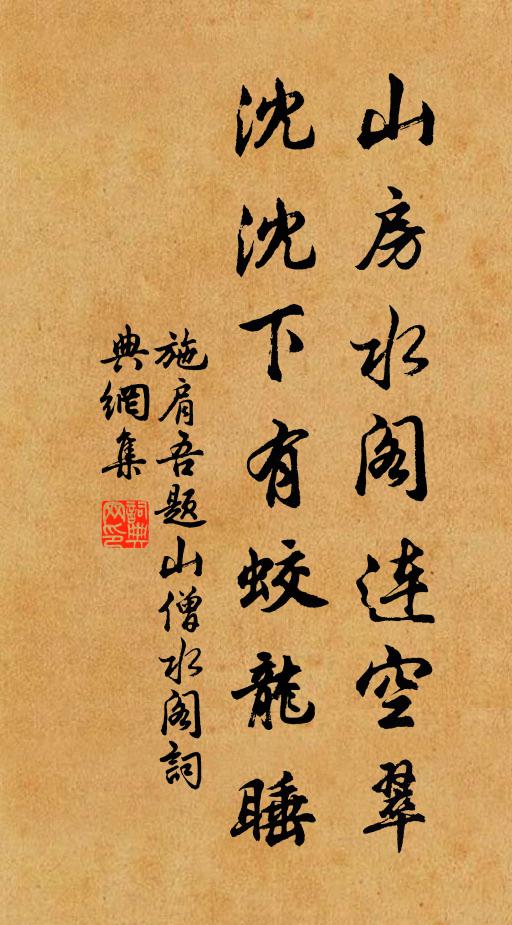 山房水阁連空翠
沈沈下有蛟龍睡
施肩吾題山僧水阁詞
典網集
詞典
网印